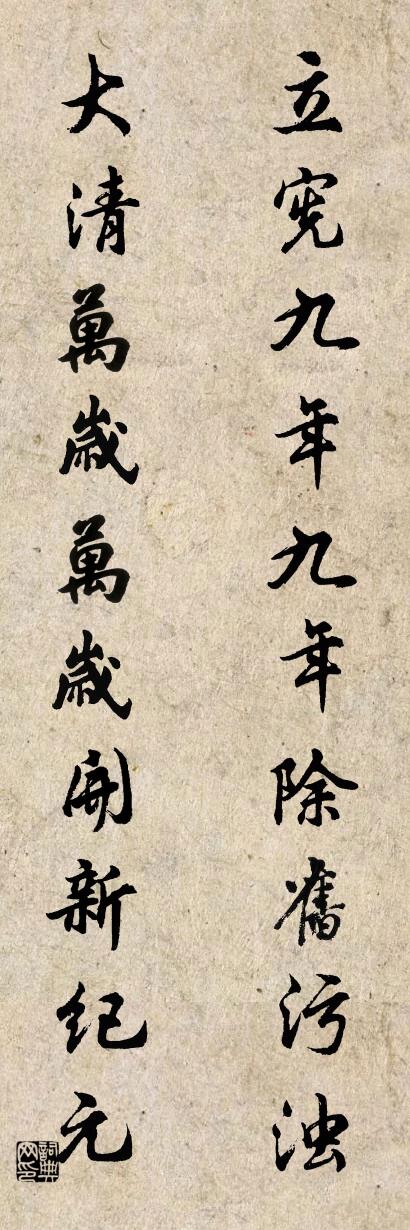 立宪九年九年除舊污浊
大清萬歲萬歲開新纪元
詞典网印